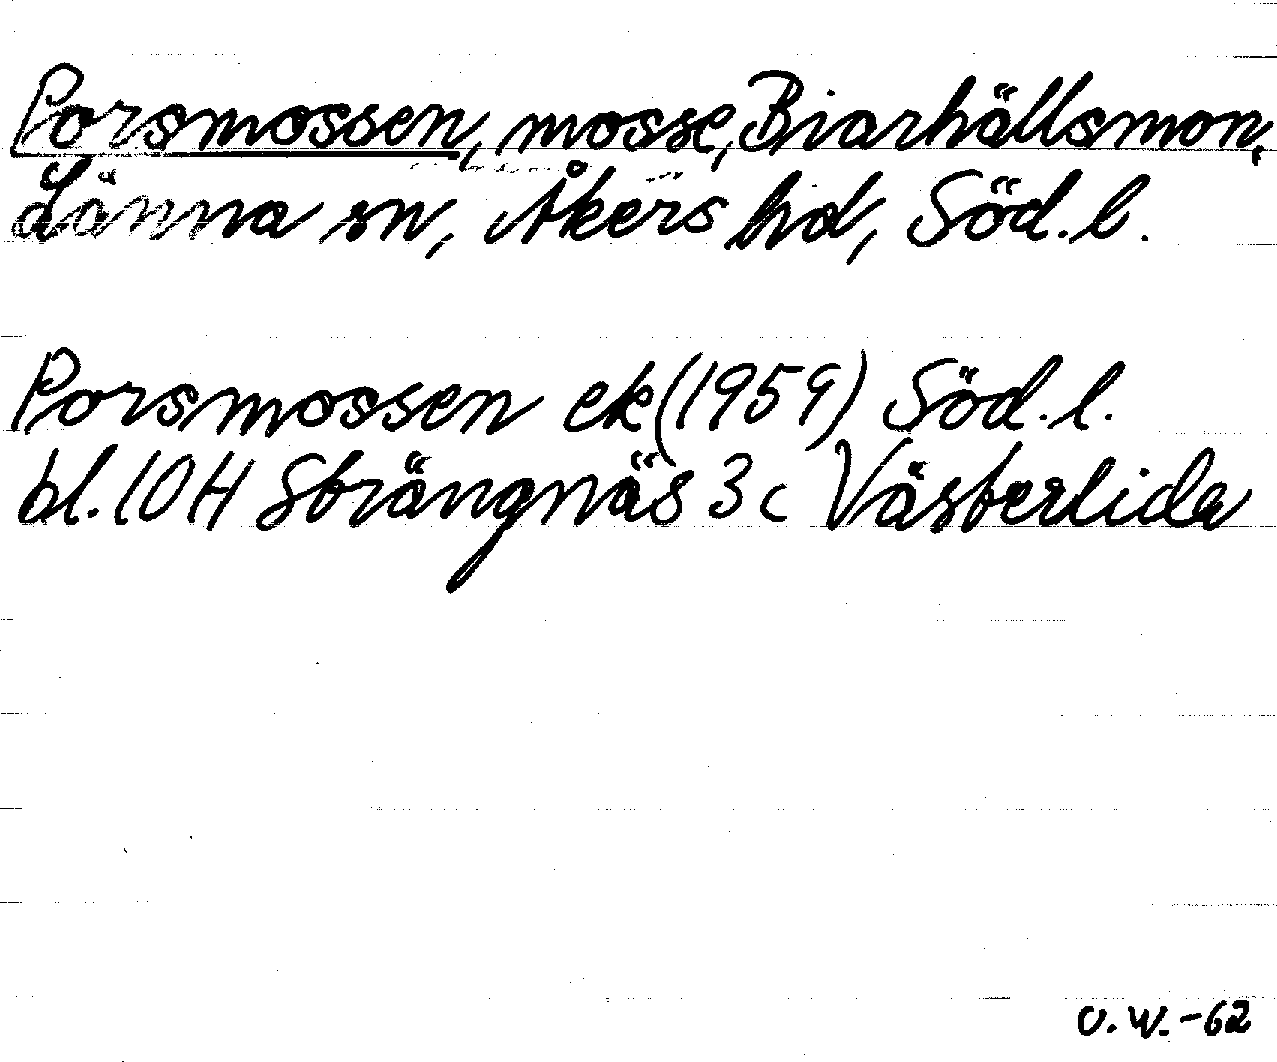 Porsmossen, mosse, Biarhällsmon,
Länna sn, Åkers hd, Söd. l.
Porsmossen ek (1959) Söd. l.
bl. 10H Strängnäs 3 c Västerlida
O. W. -62